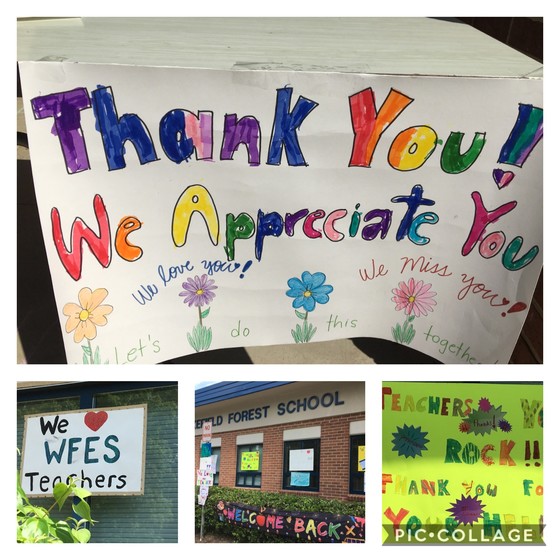 Thank You!
We Appreciate You
We love you!
We miss you!
Let's do this together
We ♥
WFES
Teachers
FOREST SCHOOL
WELCOME BACK
TEACHERS
Thanks
ROCK!!
THANK YOU FO
YOUR HEL
PIC•COLLAGE